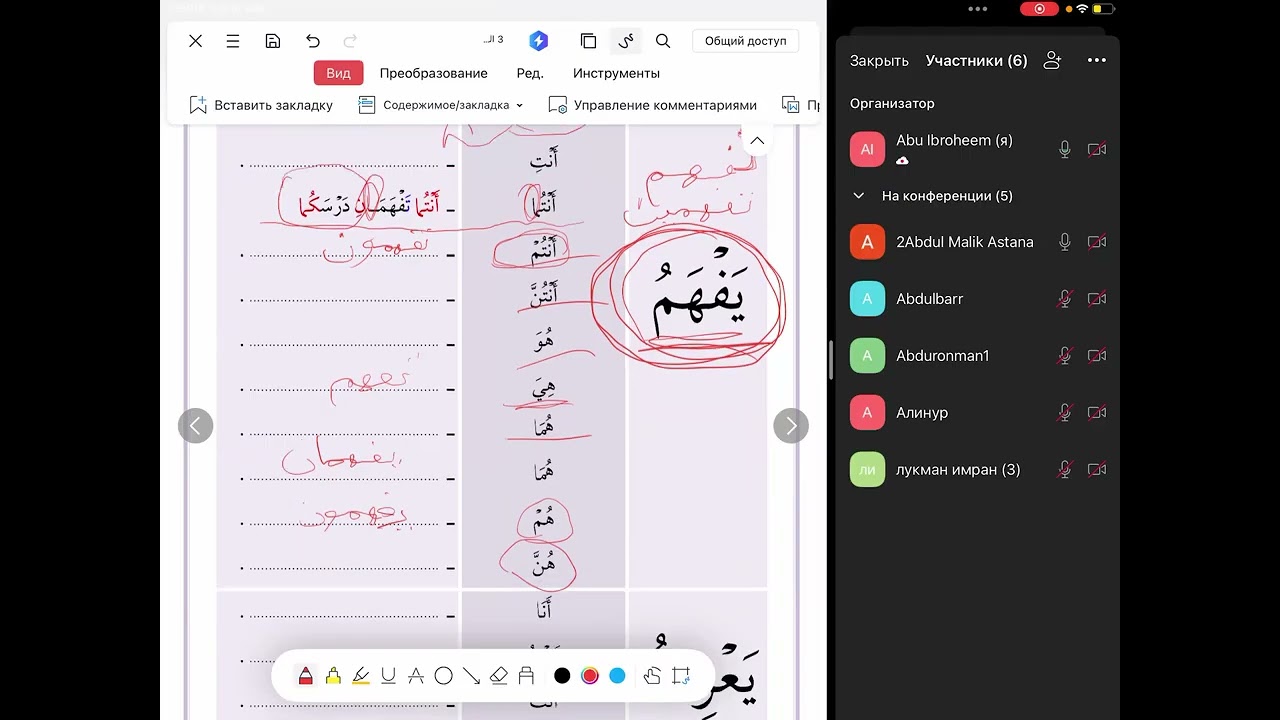 3 الـ...
Общий доступ
Вид
Преобразование
Ред.
Инструменты
Вставить закладку
Содержимое/закладка
Управление комментариями
أَنْتِ
أَنْتُمَا
– أَنْتُمَا تَفْهَمَـانِ دَرْسَكُمَا
أَنْتُمْ
تفهمون
أَنْتُنَّ
هُوَ
هِيَ
تفهم
هُمَا
يفهمان
هُمَا
هُمْ
يفهمون
هُنَّ
تفهم
تفهمين
يَفْهَمُ
أَنَا
Закрыть
Участники (6)
Организатор
AI
Abu Ibroheem (я)
На конференции (5)
A
2Abdul Malik Astana
A
Abdulbarr
A
Abduronman1
А
Алинур
ЛИ
лукман имран (3)